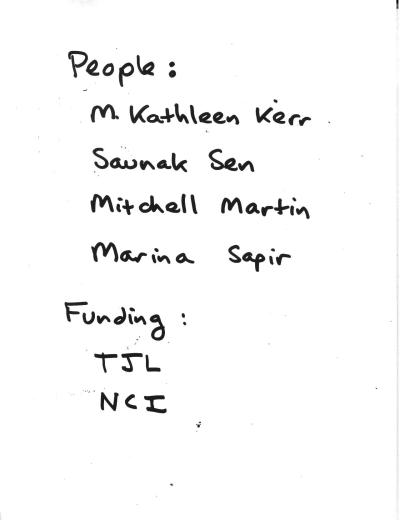 People:
M. Kathleen Kerr
Saunak Sen
Mitchell Martin
Marina Sapir
Funding:
TJL
NCI